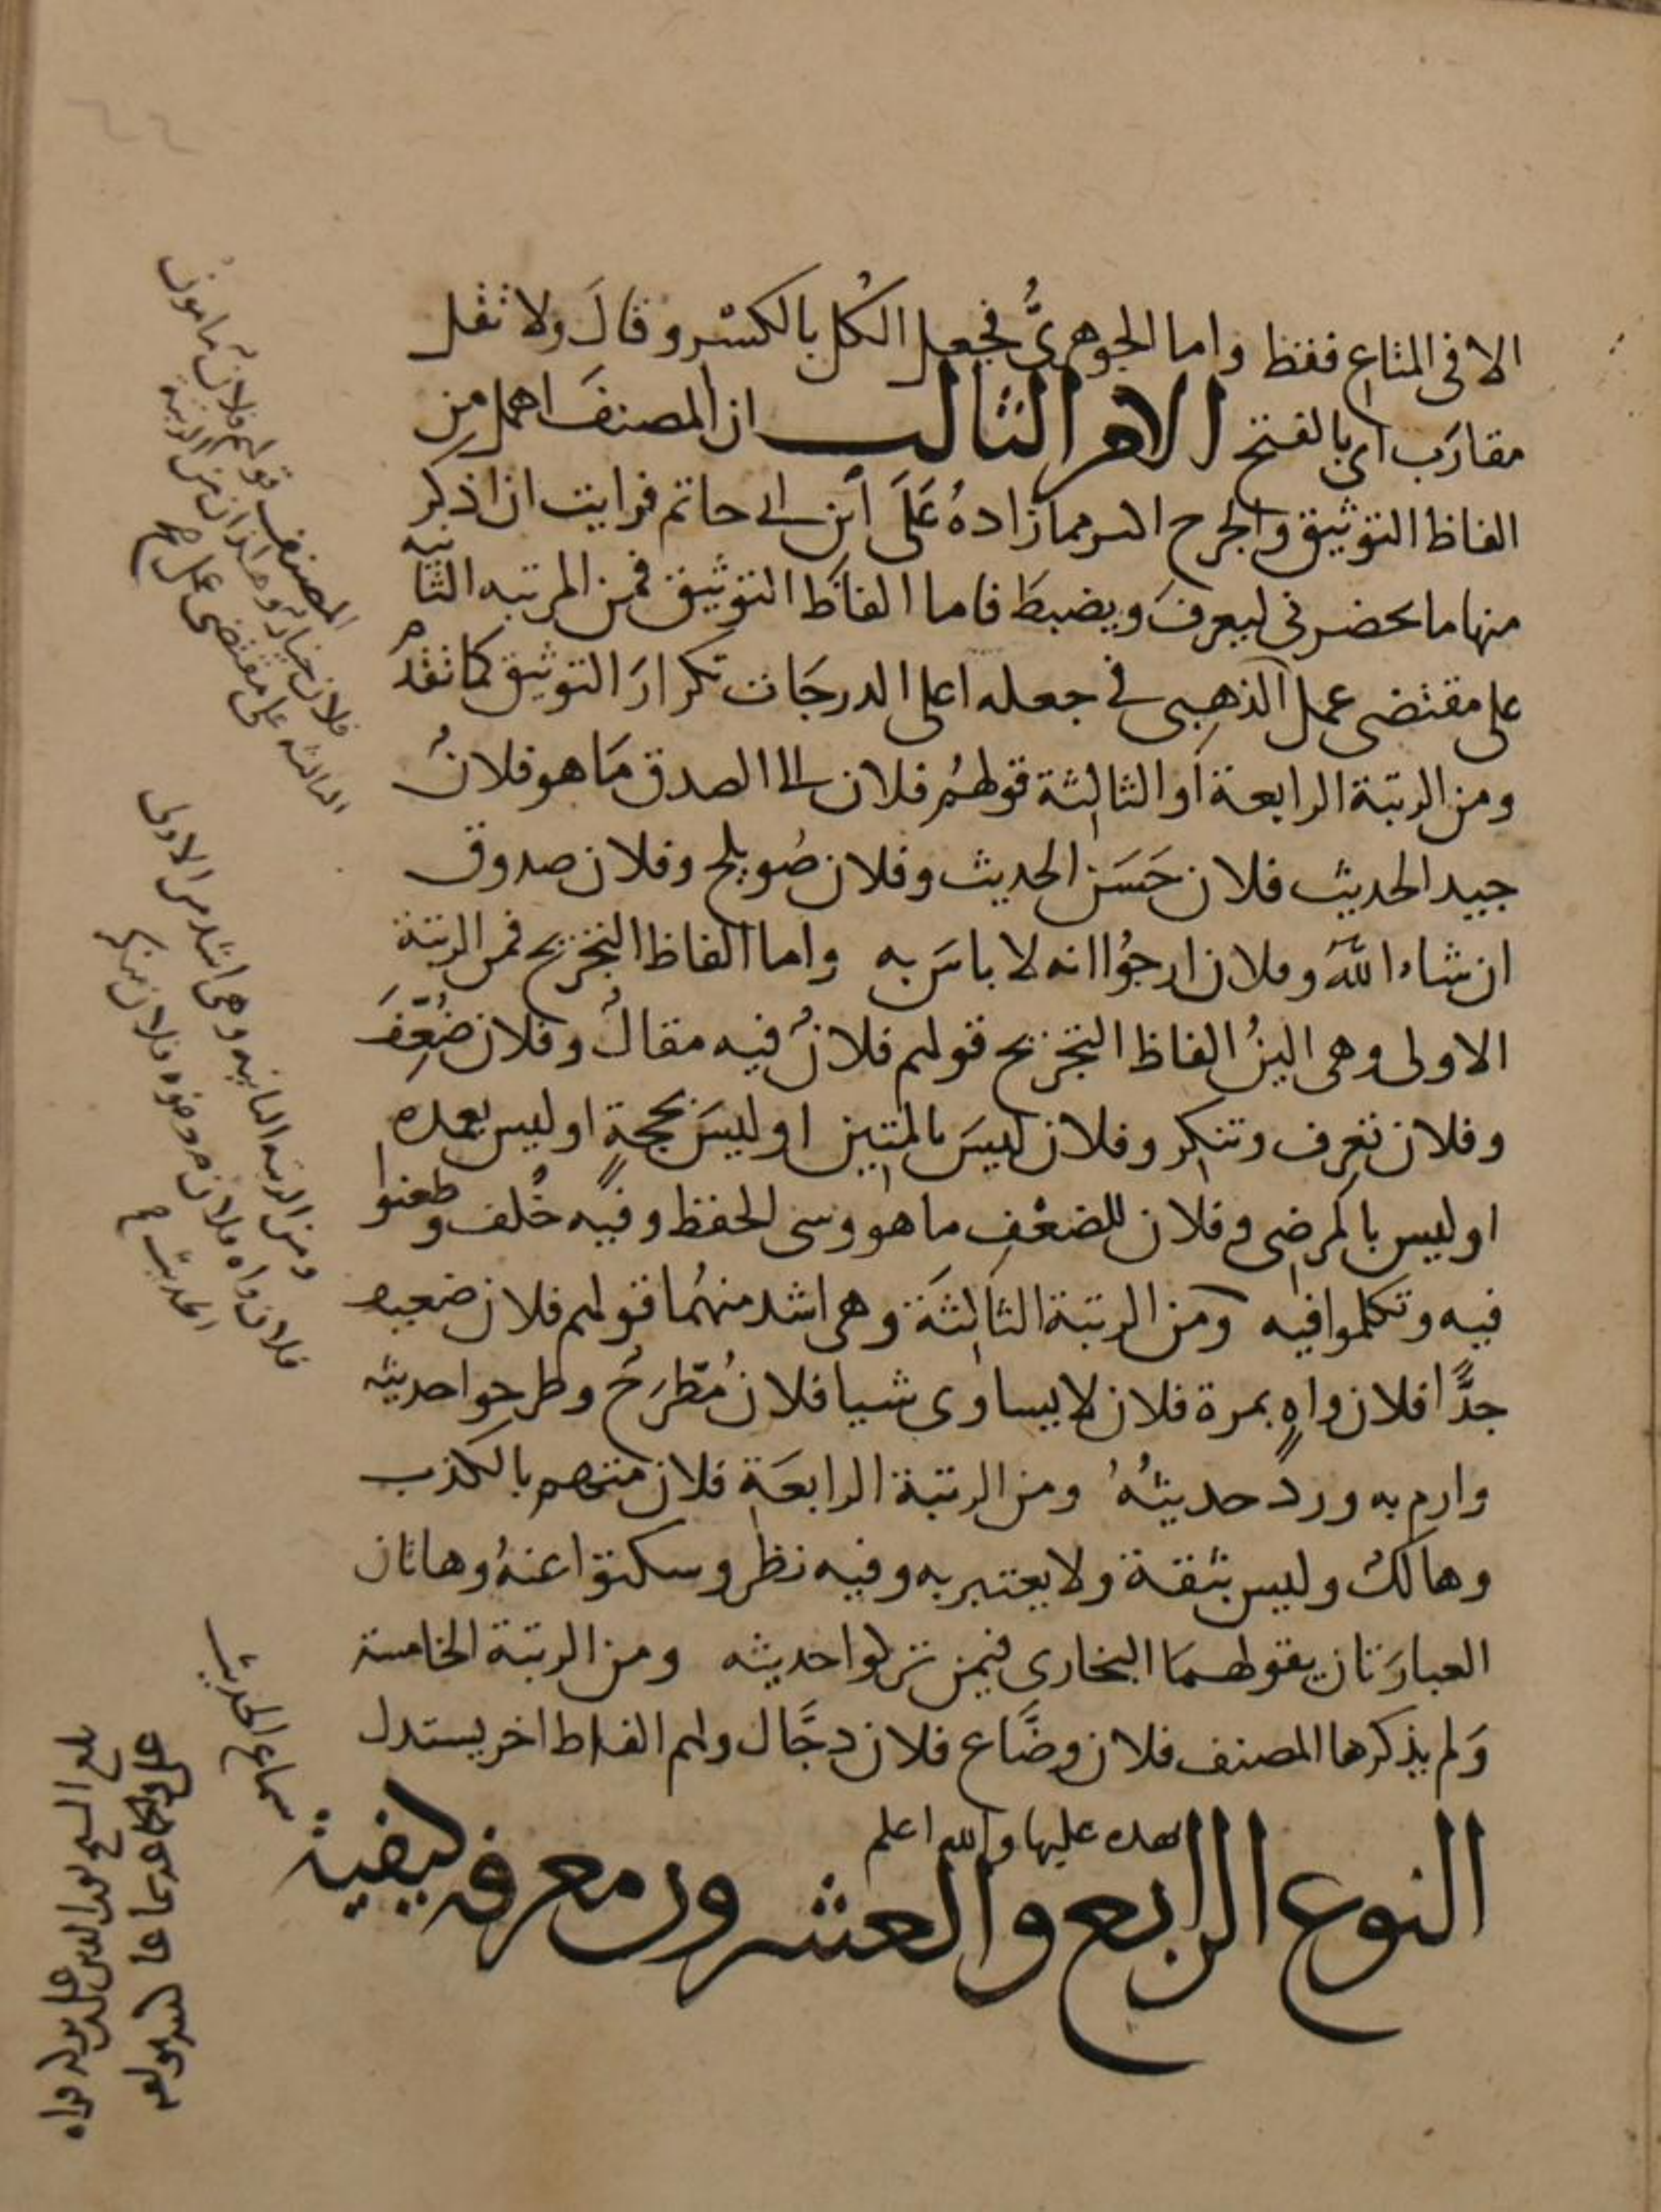 الا فى المتاع فقط واما الجوهرىُّ فجعل الكُل بالكسْر وقالَ ولا تقل
مقارَب اى بالفتح الامر الثالث ان المصنفَ اهمل مِن
الفاظ التوثيق والجرح اكثر مما زادهُ عَلَى ابْن ابى حاتم فرايت ان اذكر
منها ما يحضرنى ليعرفَ ويضبطَ فاما الفاظ التوثيق فمن المرتبه الثانيه
على مقتضى عمل الذهبى فى جعله اعلى الدرجَات تكرارَ التوثيق كما تقدم
ومن الرتبة الرابعة او الثالثة قولهُم فلان الى الصدق مَا هو فلانُ
جيد الحديث فلان حَسَن الحديث وفلان صُويلح وفلان صدوق
ان شاء الله وفلان ارجُوا انه لا باسَ به واما الفاظ التجريح فمن الرتبة
الاولى وهى الينُ الفاظ التجريح قولهم فلانٌ فيه مقالٌ وفلان ضُعِّفَ
وفلان تعرِف وتنكِر وفلان ليسَ بالمتين او ليسَ بحجةٍ او ليس بعمده
او ليس بالمرضى وفلان للضعْفِ ما هو وسىٰ الحفظ وفيه خُلف وطعنوا
فيه وتكلموا فيه ومن الرتبة الثالثة وهى اشد منهُما قولهم فلان ضعيف
جدًّا فلان واهٍ بمرة فلان لا يساوى شيا فلان مُطّرَح وطرحوا حديثه
وارم به وردّ حديثُهُ ومن الرتبة الرابعَة فلان متهم بالكذب
وهالك وليس بثقة ولا يعتبر به وفيه نظر وسكتوا عنهُ وهاتان
العبارَتان يقولهمَا البخارى فيمن تركوا حديثه ومن الرتبة الخامسة
وَلم يذكرها المصنف فلان وضَّاع فلان دجَّال ولهم الفاظ اخر يستدل
بهذه عليها والله اعلم
النوع الرابع والعشرون معرفه كيفية
سماع الحديث
المصنف قولهم فلان مامونٌ
فلان خيار وهذان من الرتبة
الثالثه على مقتضى عمل
ومن الرتبه الثانيه وهى اشد من الاولى
فلان واه فلان فلان منكر
الحديث